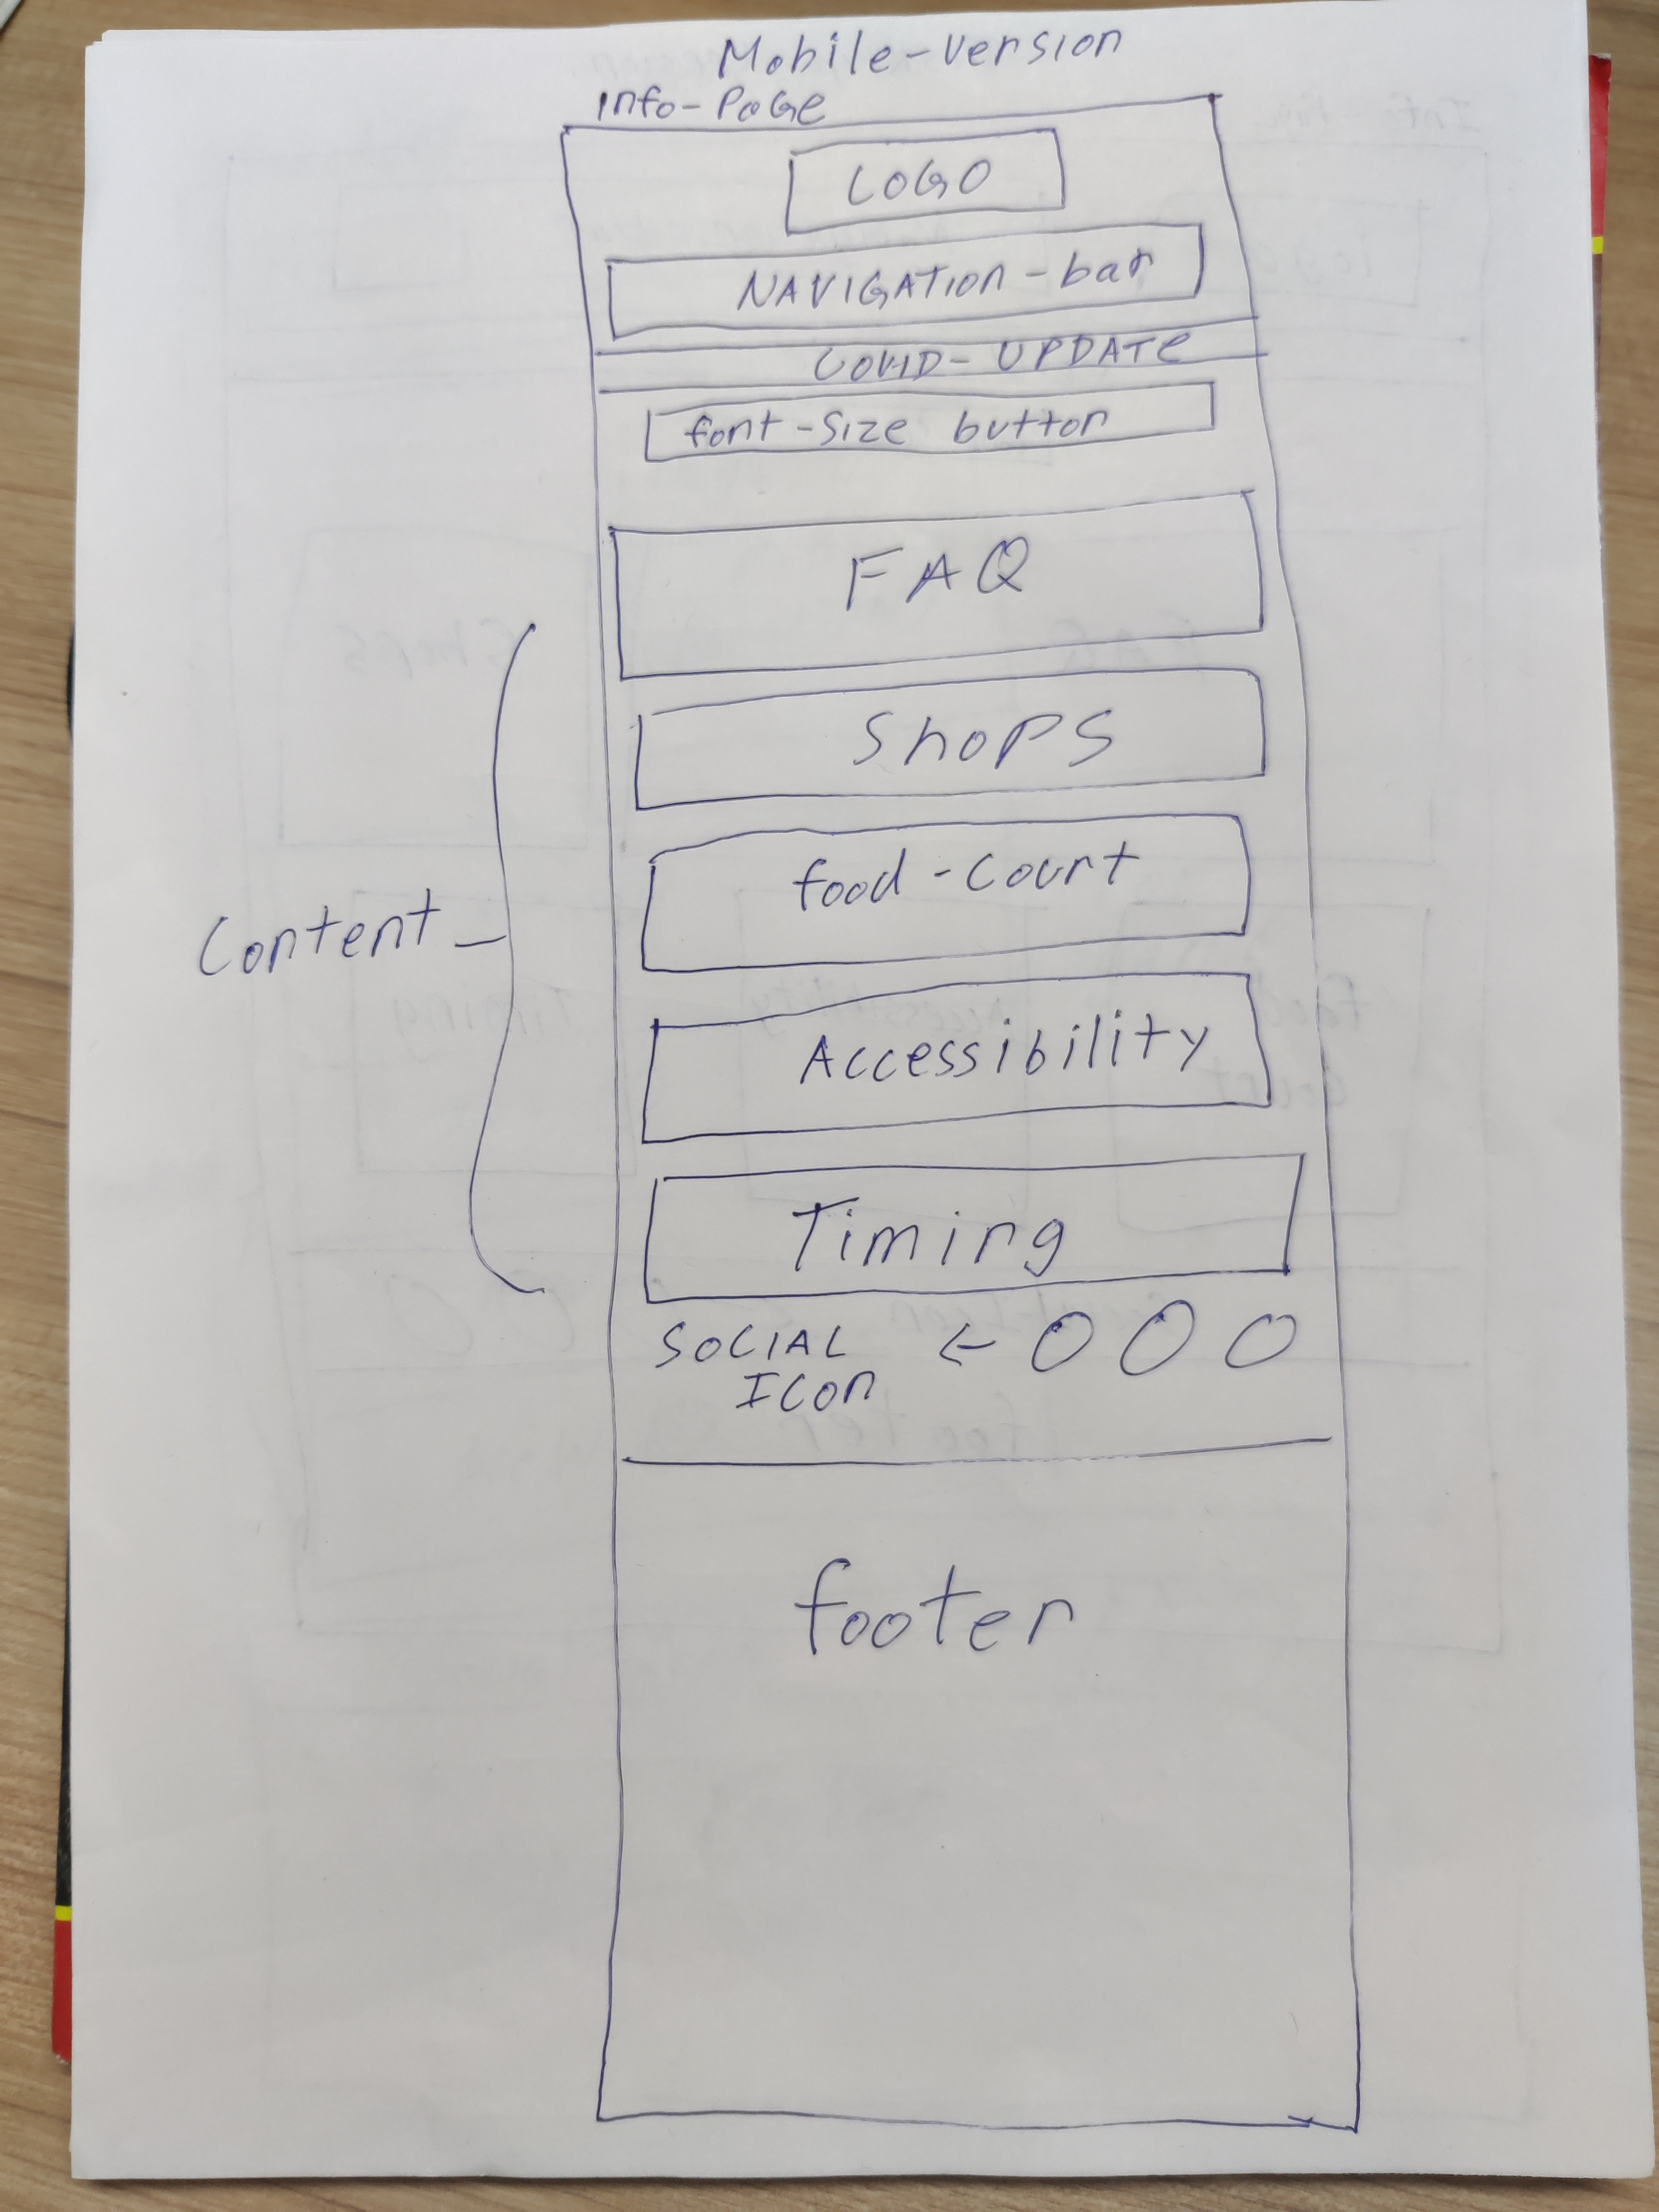 Mobile-Version
Info-Page
LOGO
NAVIGATION-bar
COVID-UPDATE
font-size button
FAQ
Shops
food-court
Content
Accessibility
Timing
SOCIAL
ICON
footer